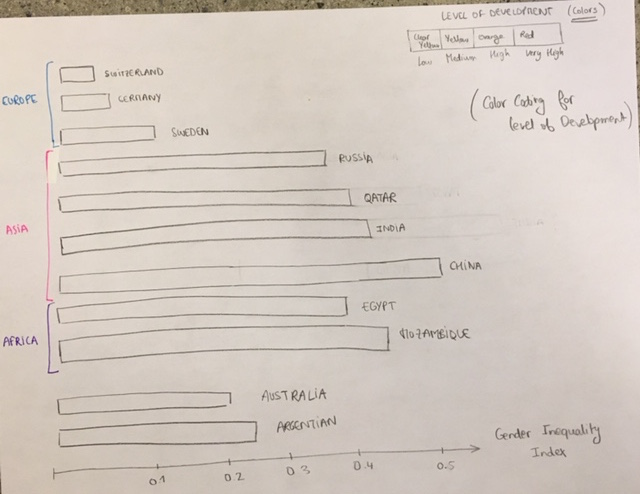 LEVEL OF DEVELOPMENT (Colors)
Clear Yellow
Yellow
Orange
Red
Low
Medium
High
Very High
(Color Coding for
level of Development)
EUROPE
SWITZERLAND
GERMANY
SWEDEN
ASIA
RUSSIA
QATAR
INDIA
CHINA
AFRICA
EGYPT
MOZAMBIQUE
AUSTRALIA
ARGENTIAN
0.1
0.2
0.3
0.4
0.5
Gender Inequality
Index